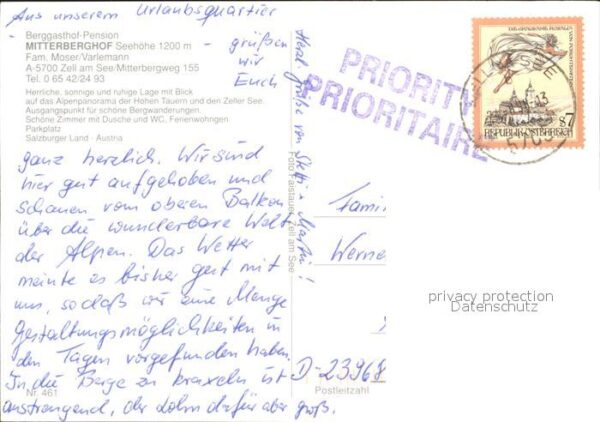 Aus unserem Urlaubsquartier -
Berggasthof-Pension
MITTERBERGHOF Seehöhe 1200 m
Fam. Moser/Varlemann
A-5700 Zell am See/Mitterbergweg 155
Tel. 0 65 42/24 93
Herrliche, sonnige und ruhige Lage mit Blick
auf das Alpenpanorama der Hohen Tauern und den Zeller See.
Ausgangspunkt für schöne Bergwanderungen.
Schöne Zimmer mit Dusche und WC, Ferienwohngen
Parkplatz
Salzburger Land · Austria
- grüßen
wir
Euch
ganz herzlich. Wir sind
hier gut aufgehoben und
schauen vom oberen Balkon
über die wunderbare Welt
der Alpen. Das Wetter
meinte es bisher gut mit
uns, sodaß wir eine Menge
Gestaltungsmöglichkeiten in
den Tagen vorgefunden haben.
In die Berge zu kraxeln ist
anstrengend, der Lohn dafür aber groß.
Nr. 461
Grüße von Steffi u. Martin!
Foto Faistauer, Zell am See
PRIORITY
PRIORITAIRE
ZELL AM SEE
5700
S7
REPUBLIK ÖSTERREICH
Famil
Werne
D-23968
Postleitzahl
privacy protection
Datenschutz